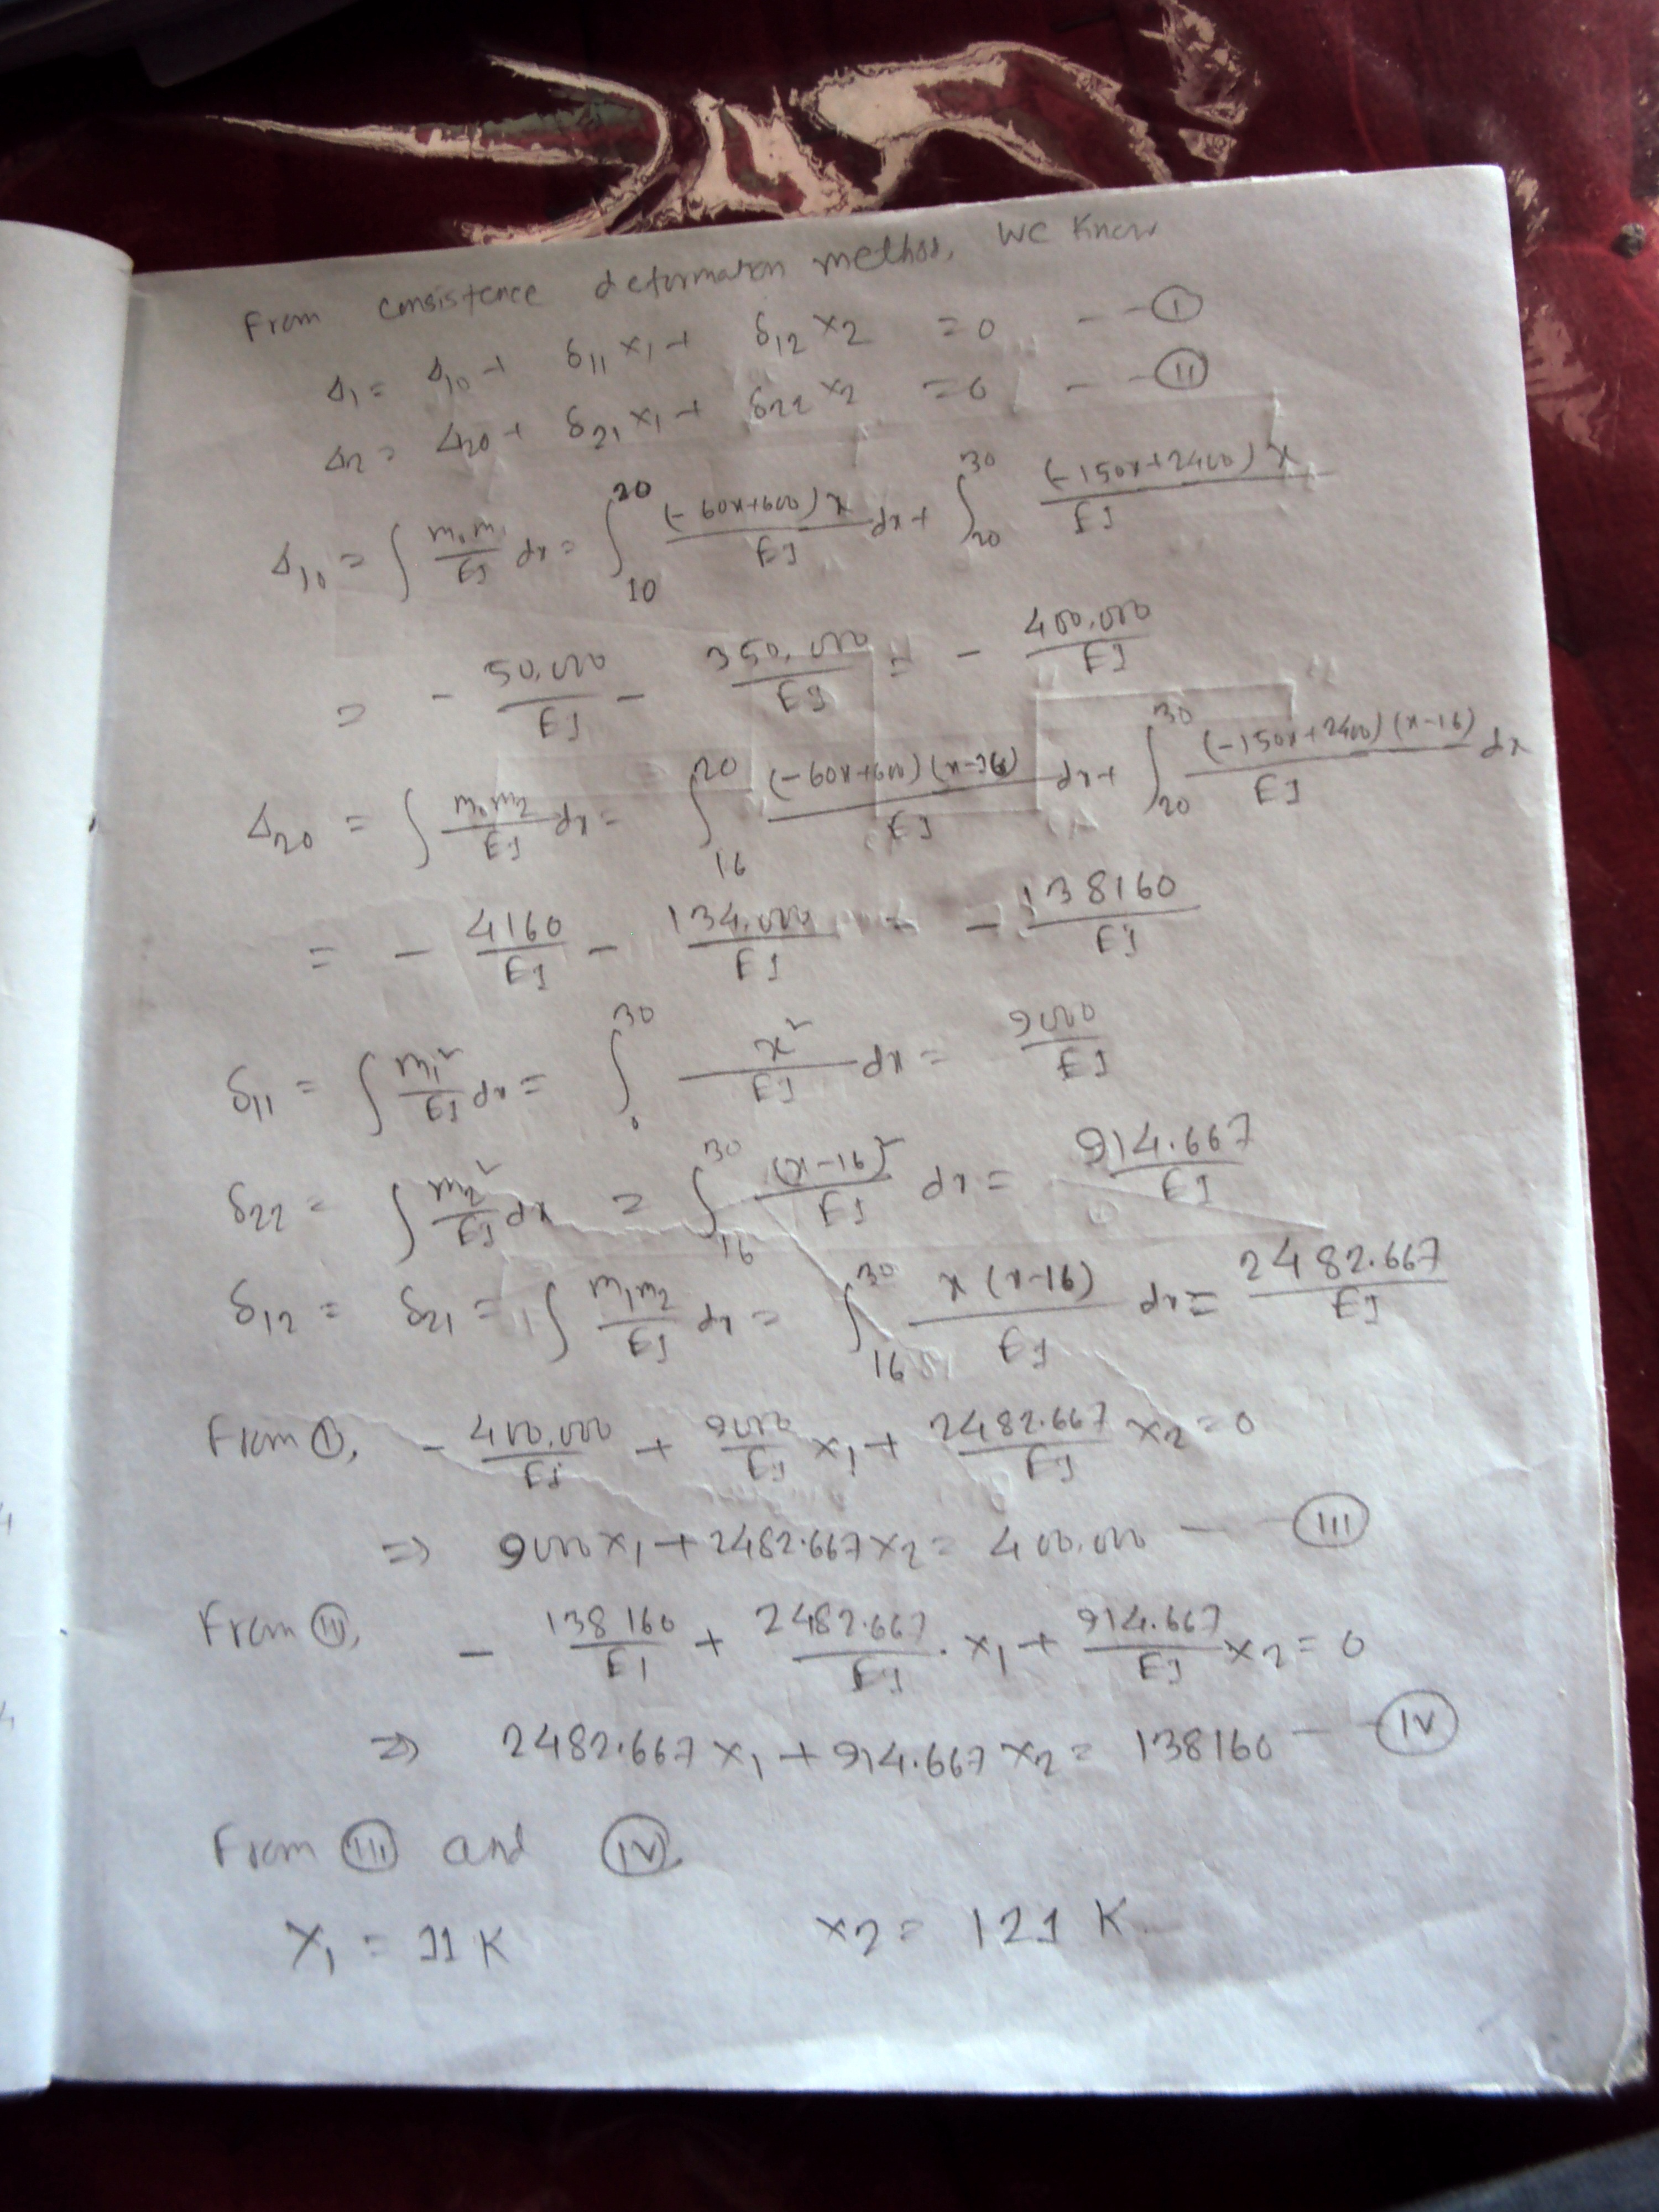 From consistence deformation method, we know
Δ1 = Δ10 + δ11 x1 + δ12 x2 = 0 - - (I)
Δ2 = Δ20 + δ21 x1 + δ22 x2 = 0 - - (II)
Δ10 = ∫ m0m1/EI dx = ∫_10^20 (-60x+600)x/EI dx + ∫_20^30 (-150x+2400)x/EI
= - 50,000/EI - 350,000/EI = - 400,000/EI
Δ20 = ∫ m0m2/EI dx = ∫_16^20 (-60x+600)(x-16)/EI dx + ∫_20^30 (-150x+2400)(x-16)/EI dx
= - 4160/EI - 134,000/EI = - 138160/EI
δ11 = ∫ m1²/EI dx = ∫_0^30 x²/EI dx = 9000/EI
δ22 = ∫ m2²/EI dx = ∫_16^30 (x-16)²/EI dx = 914.667/EI
δ12 = δ21 = ∫ m1m2/EI dx = ∫_16^30 x(x-16)/EI dx = 2482.667/EI
From (I), - 400,000/EI + 9000/EI x1 + 2482.667/EI x2 = 0
⇒ 9000x1 + 2482.667x2 = 400,000 - - (III)
From (II), - 138160/EI + 2482.667/EI . x1 + 914.667/EI x2 = 0
⇒ 2482.667x1 + 914.667x2 = 138160 - - (IV)
From (III) and (IV)
X1 = 11 K x2 = 121 K